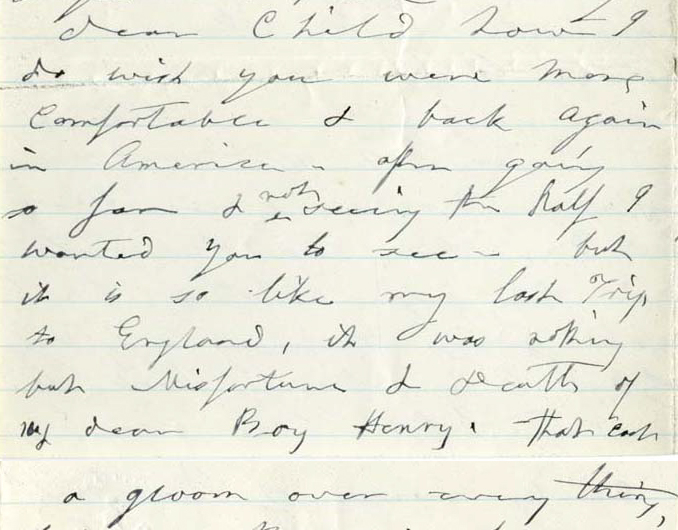 dear Child how I
do wish you were more
Comfortable & back again
in America - after going
so far & not seeing the half I
wanted you to see - but
it is so like my last Trip
to England, it was nothing
but Misfortune & death of
my dear Boy Henry. That cast
a gloom over every thing,